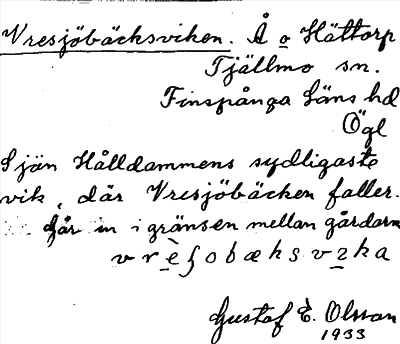 Vresjöbäcksviken. Å o Hättorp
Tjällmo sn.
Finspånga Läns hd
Ögl
Sjön Hålldammens sydligaste
vik, där Vresjöbäcken faller.
Går in i gränsen mellan gårdarn
vrèʃobæksvɪka
Gustaf E. Olsson
1933